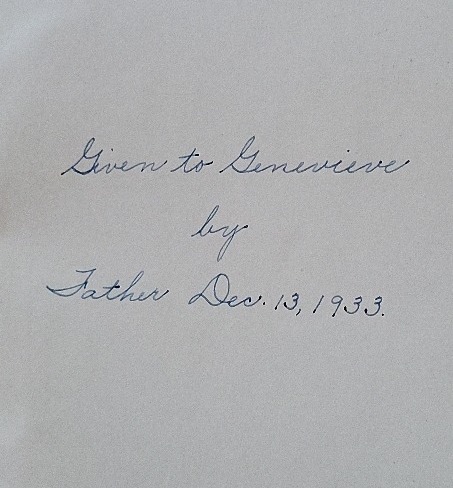 Given to Genevieve
by
Father Dec. 13, 1933.